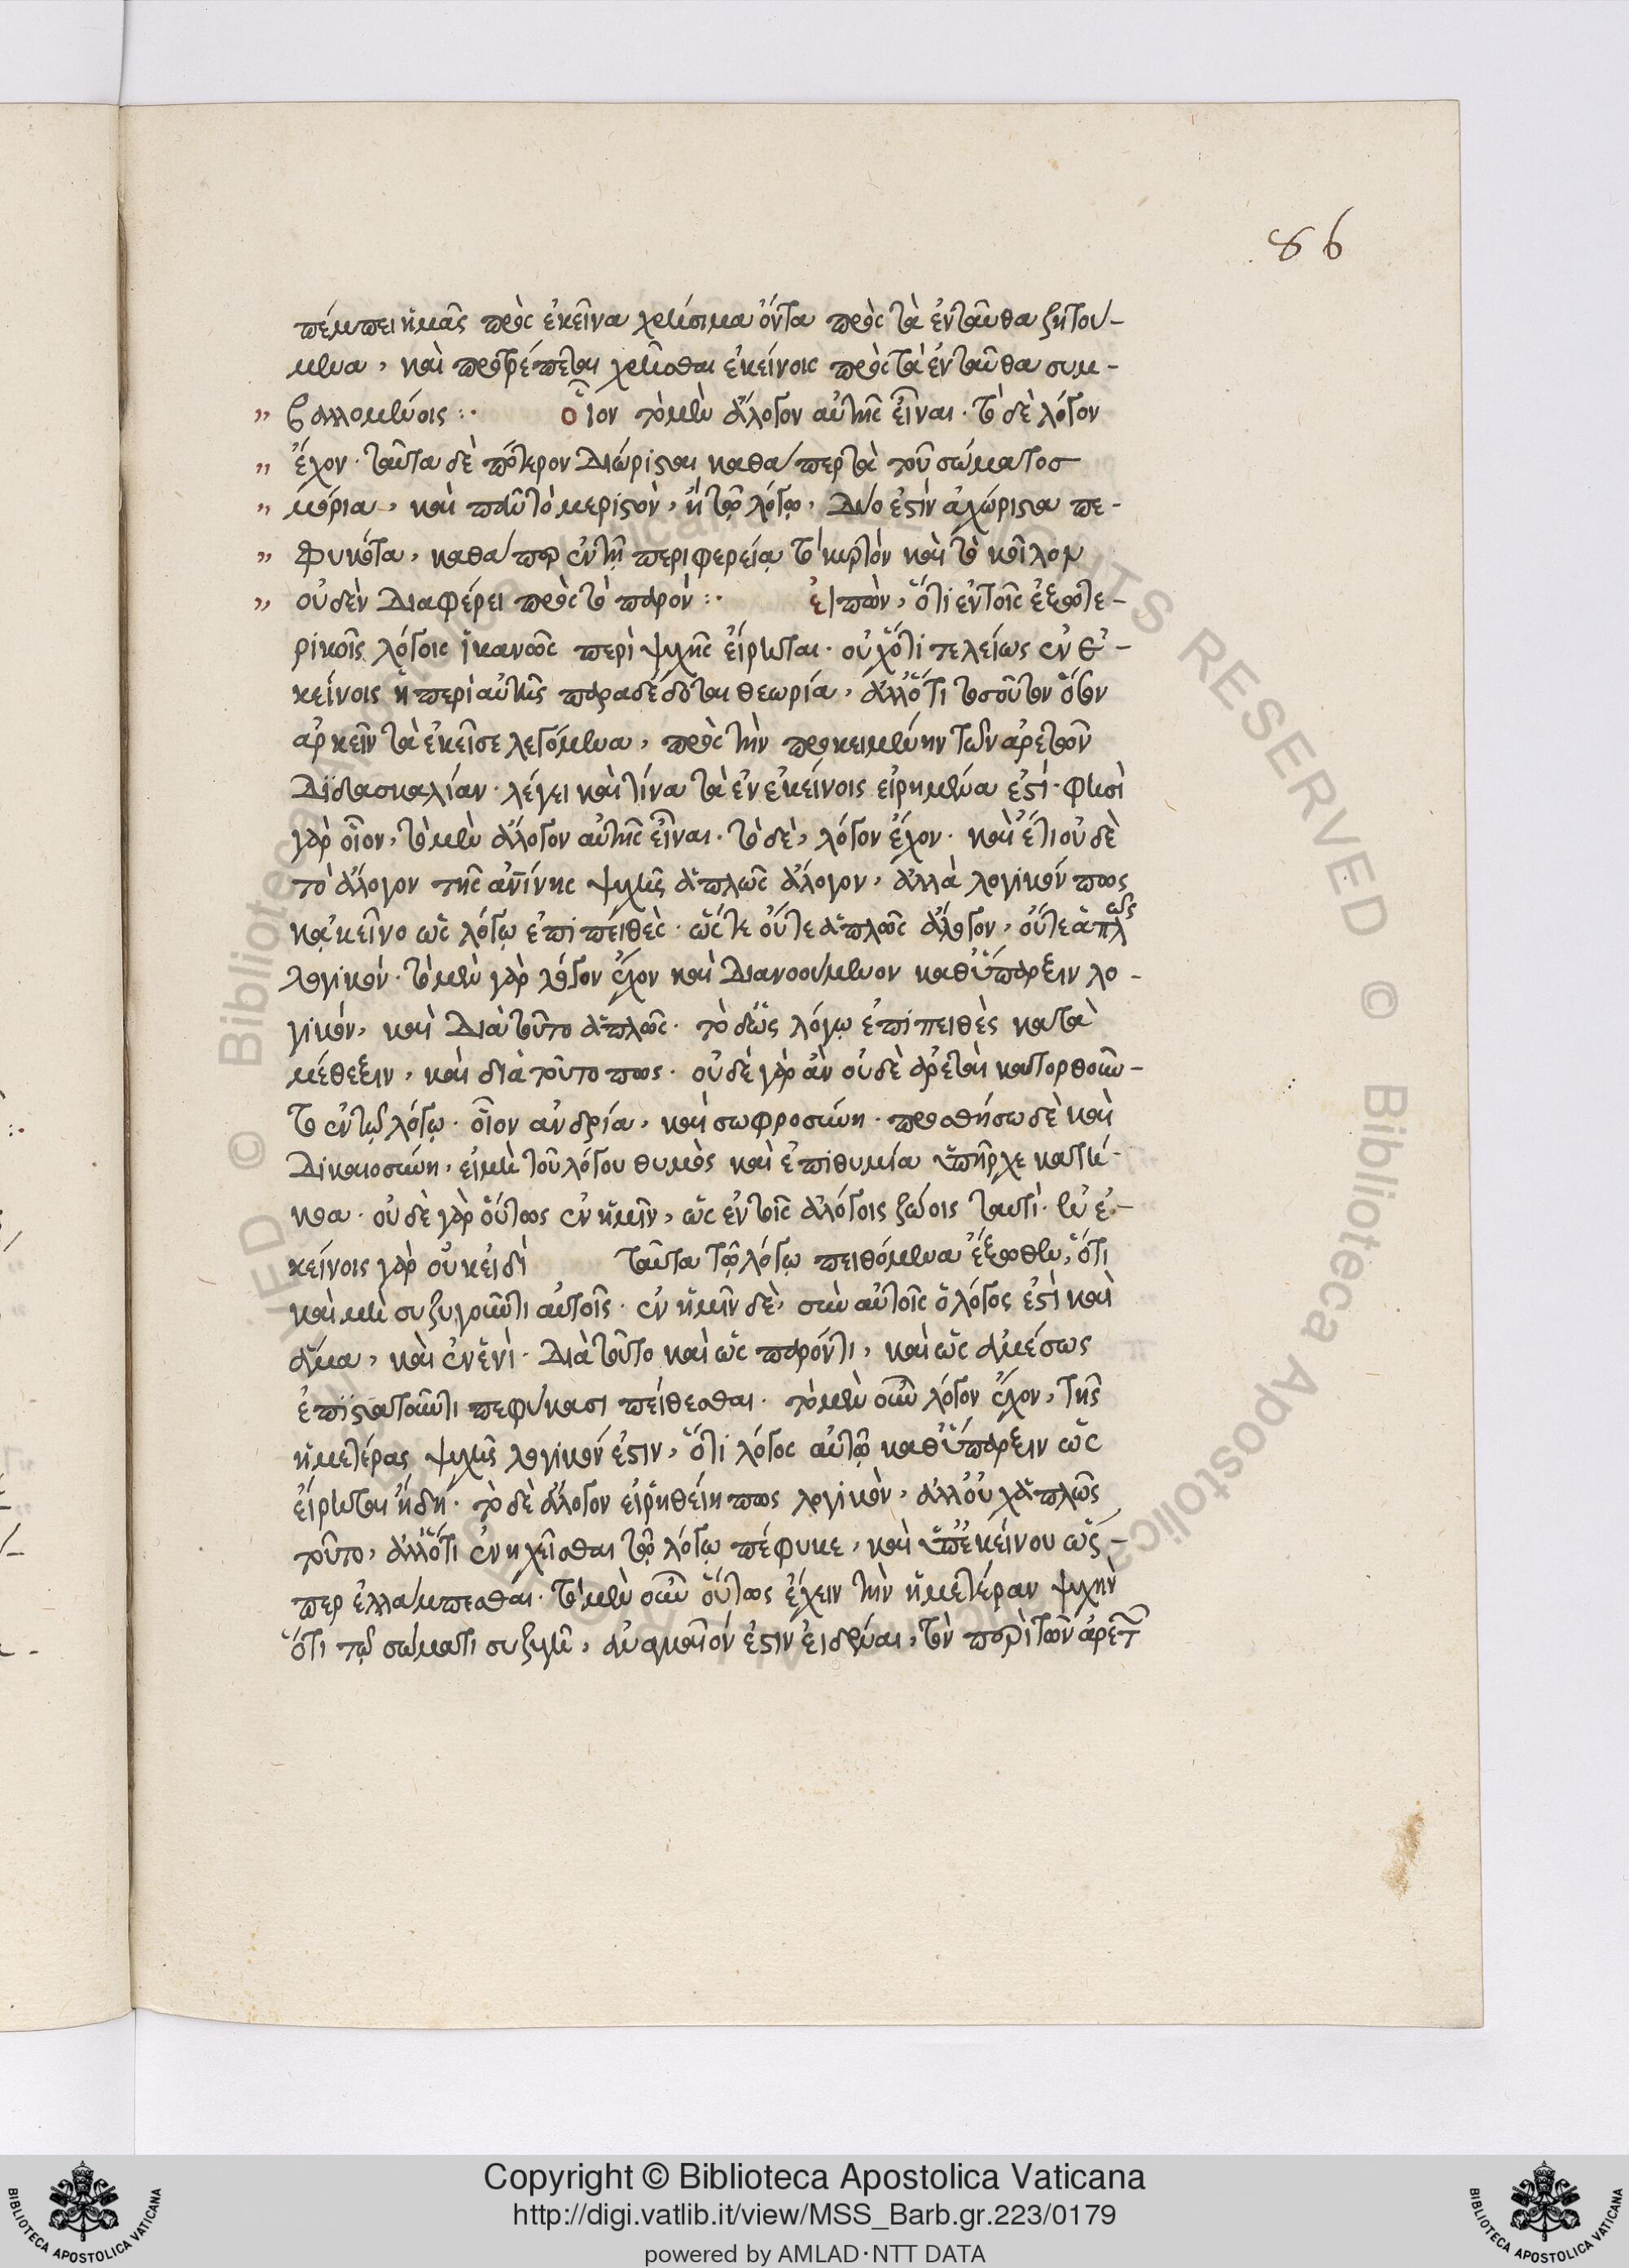 86
πέμπει ἡμᾶς πρὸς ἐκεῖνα χρήσιμα ὄντα πρὸς τὰ ἐνταῦθα ζητού-
μενα, καὶ προτρέπεται χρῆσθαι ἐκείνοις πρὸς τὰ ἐνταῦθα συμ-
βαλλομένοις :· οἷον τὸ μὲν ἄλογον αὐτῆς εἶναι· τὸ δὲ λόγον
ἔχον· ταῦτα δὲ πότερον διώρισται καθάπερ τὰ τοῦ σώματος
μόρια, καὶ πᾶν τὸ μεριστὸν, ἢ τῷ λόγῳ, δύο ἐστὶν ἀχώριστα πε-
φυκότα, καθάπερ ἐν τῇ περιφερείᾳ τὸ κυρτὸν καὶ τὸ κοῖλον
οὐδὲν διαφέρει πρὸς τὸ παρόν :· εἰπὼν, ὅτι ἐν τοῖς ἐξωτε-
ρικοῖς λόγοις ἱκανῶς περὶ ψυχῆς εἴρηται· οὐχ ὅτι τελείως ἐν ἐ-
κείνοις ἡ περὶ αὐτῆς παραδέδοται θεωρία, ἀλλ' ὅτι τοσοῦτον ὅσον
ἀρκεῖν τὰ ἐκεῖσε λεγόμενα, πρὸς τὴν προκειμένην τῶν ἀρετῶν
διδασκαλίαν· λέγει καὶ τίνα τὰ ἐν ἐκείνοις εἰρημένα ἐστί· φησὶ
γὰρ οἷον, τὸ μὲν ἄλογον αὐτῆς εἶναι· τὸ δὲ, λόγον ἔχον· καὶ ἔτι οὐδὲ
τὸ ἄλογον τῆς ἀνίνης ψυχῆς ἁπλῶς ἄλογον, ἀλλὰ λογικόν πως
κἀκεῖνο ὡς λόγῳ ἐπιπειθές· ὥστε οὔτε ἁπλῶς ἄλογον, οὔτε ἁπλῶς
λογικόν· τὸ μὲν γὰρ λόγον ἔχον καὶ διανοούμενον καθ' ὕπαρξιν λο-
γικόν, καὶ διὰ τοῦτο ἁπλῶς· τὸ δὲ ὡς λόγῳ ἐπιπειθὲς κατὰ
μέθεξιν, καὶ διὰ τοῦτο πως· οὐδὲ γὰρ ἂν οὐδὲ ἀρεταὶ κατορθοῖν-
το ἐν τῷ λόγῳ· οἷον ἀνδρία, καὶ σωφροσύνη· προσθήσω δὲ καὶ
δικαιοσύνη, εἰ μὴ τοῦ λόγου θυμὸς καὶ ἐπιθυμία ὑπῆρχε κατή-
κοα· οὐδὲ γὰρ οὕτως ἐν ἡμῖν, ὡς ἐν τοῖς ἀλόγοις ζώοις ταυτί· ἐν ἐ-
κείνοις γὰρ οὐκ εἰδὶ ταῦτα τῷ λόγῳ πειθόμενα ἔξωθεν, ὅτι
καὶ μὴ συζυγοῦντι αὐτοῖς· ἐν ἡμῖν δὲ, σὺν αὐτοῖς ὁ λόγος ἐστὶ καὶ
ἅμα, καὶ ἐν ἑνὶ· διὰ τοῦτο καὶ ὡς παρόντι, καὶ ὡς ἀμέσως
ἐπιστατοῦντι πεφύκασι πείθεσθαι· τὸ μὲν οὖν λόγον ἔχον, τῆς
ἡμετέρας ψυχῆς λογικόν ἐστιν, ὅτι λόγος αὐτῷ καθ' ὕπαρξιν ὡς
εἴρηται ἤδη· τὸ δὲ ἄλογον εἰρηθείη πως λογικὸν, ἀλλ' οὐχ ἁπλῶς
τοῦτο, ἀλλ' ὅτι ἐνηχεῖσθαι τῷ λόγῳ πέφυκε, καὶ ὑπ' ἐκείνου ὥσ-
περ ἐλλάμπεσθαι· τὸ μὲν οὖν οὕτως ἔχειν τὴν ἡμετέραν ψυχὴν
ὅτι τῷ σώματι συζυγῆ, ἀναγκαῖόν ἐστιν εἰδέναι, τὸν περὶ τῶν ἀρετ
Copyright © Biblioteca Apostolica Vaticana
http://digi.vatlib.it/view/MSS_Barb.gr.223/0179
powered by AMLAD·NTT DATA